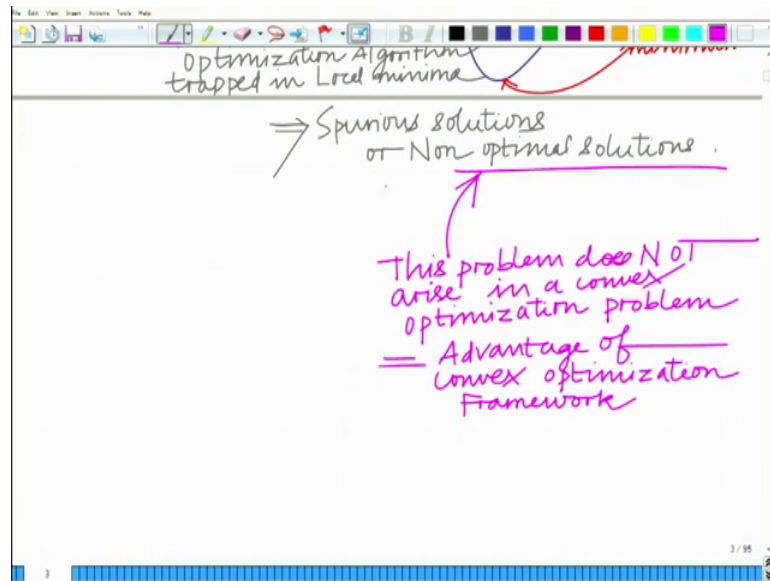 File Edit View Insert Actions Tools Help
B I
optimization Algorithm
trapped in Local minima
minimum
⇒ Spurious solutions
or Non optimal solutions .
This problem does NOT
arise in a convex
optimization problem
= Advantage of
convex optimization
Framework
3 / 95
3